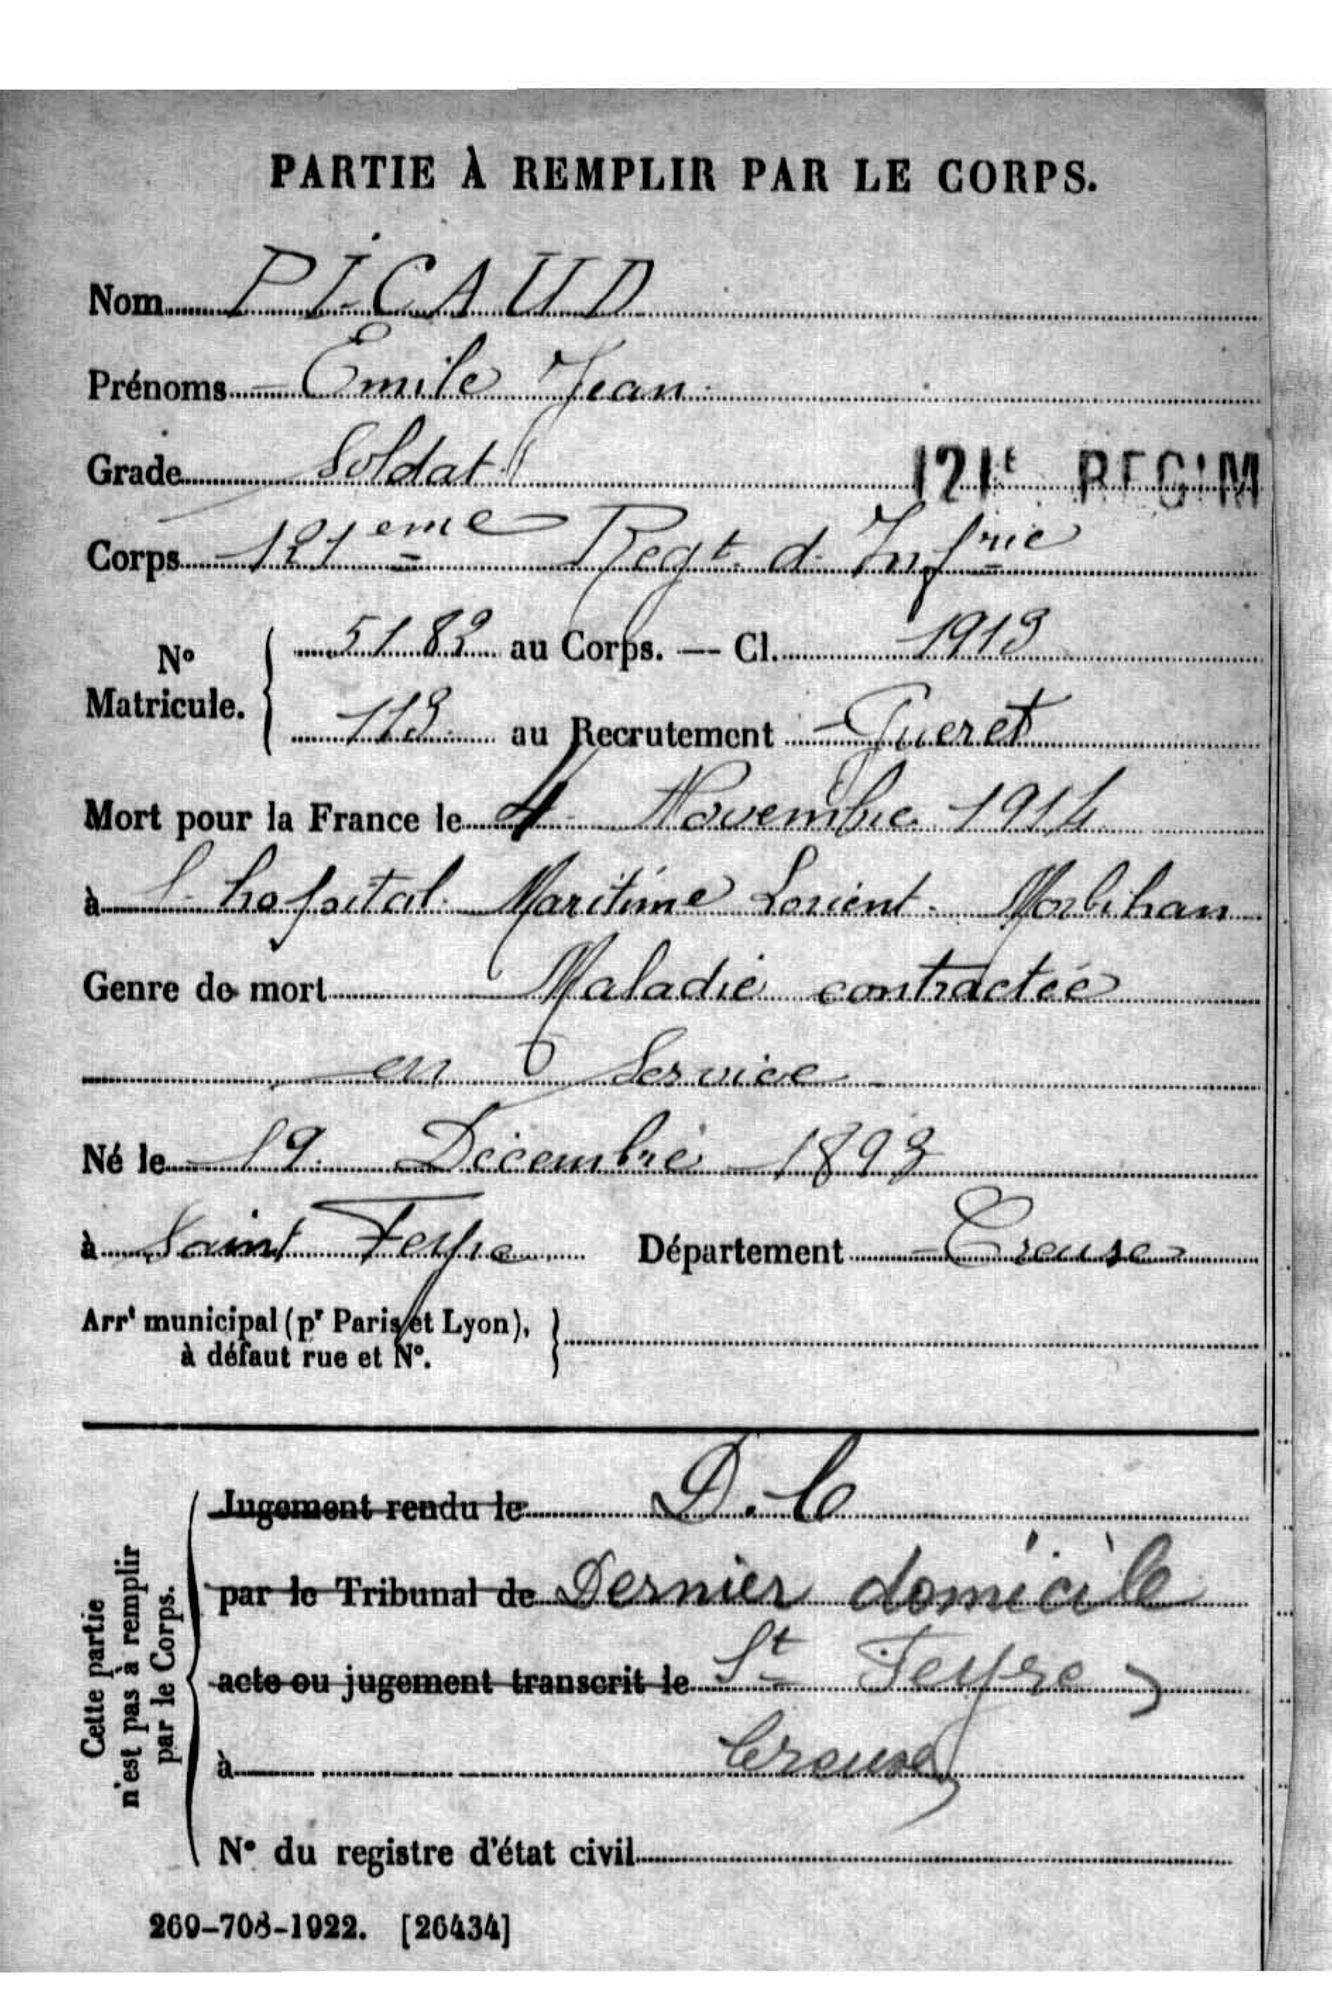 PARTIE À REMPLIR PAR LE CORPS.
Nom PICAUD
Prénoms Emile Jean
Grade Soldat
121e REGIM
Corps 121eme Regt d'Infrie
No Matricule. 5182 au Corps. — Cl. 1913
113 au Recrutement Gueret
Mort pour la France le 4 Novembre 1914
à l'hopital Maritime Lorient Morbihan
Genre de mort Maladie contractée
en Service
Né le 19 Décembre 1893
à Saint Feyre Département Creuse
Arrt municipal (pr Paris et Lyon),
à défaut rue et No.
Cette partie
n'est pas à remplir
par le Corps.
Jugement rendu le D.C
par le Tribunal de Dernier domicile
acte ou jugement transcrit le St Feyre
à Creuse
No du registre d'état civil
269-708-1922. [26434]